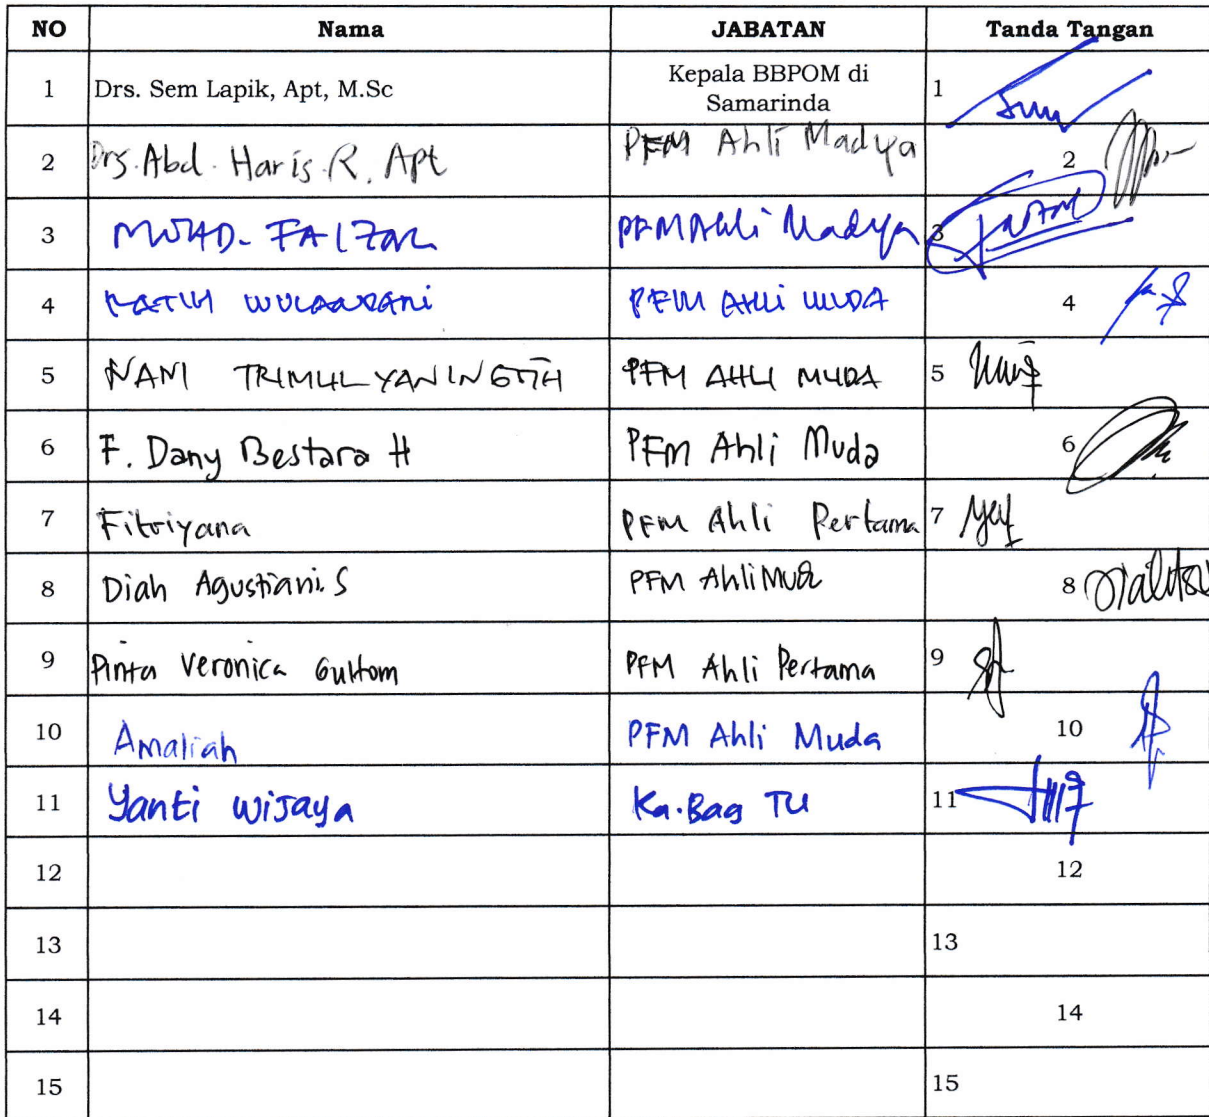 NO Nama JABATAN Tanda Tangan
1 Drs. Sem Lapik, Apt, M.Sc Kepala BBPOM di Samarinda 1
2 Drs. Abd. Haris. R. Apt PFM Ahli Madya 2
3 MUHD. FAIZAL PFM Ahli Madya 3
4 RATIH WULANDARI PFM AHLI MUDA 4
5 NANI TRIMULYANINGSIH PFM AHLI MUDA 5
6 F. Dany Bestara H PFM Ahli Muda 6
7 Fitriyana PFM Ahli Pertama 7
8 Diah Agustiani. S PFM Ahli Muda 8
9 Pinta Veronica Gultom PFM Ahli Pertama 9
10 Amaliah PFM Ahli Muda 10
11 Yanti Wijaya Ka.Bag TU 11
12 12
13 13
14 14
15 15